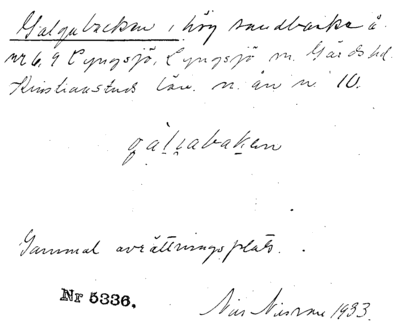 Galgabacken, hög sandbacke å
nr 6, 9 Lyngsjö, Lyngsjö sn. Gärds hd.
Kristianstads län. n. ån n. 10.
gálgabakən
Gammal avrättningsplats.
Nr 5336.
Nils 1933.